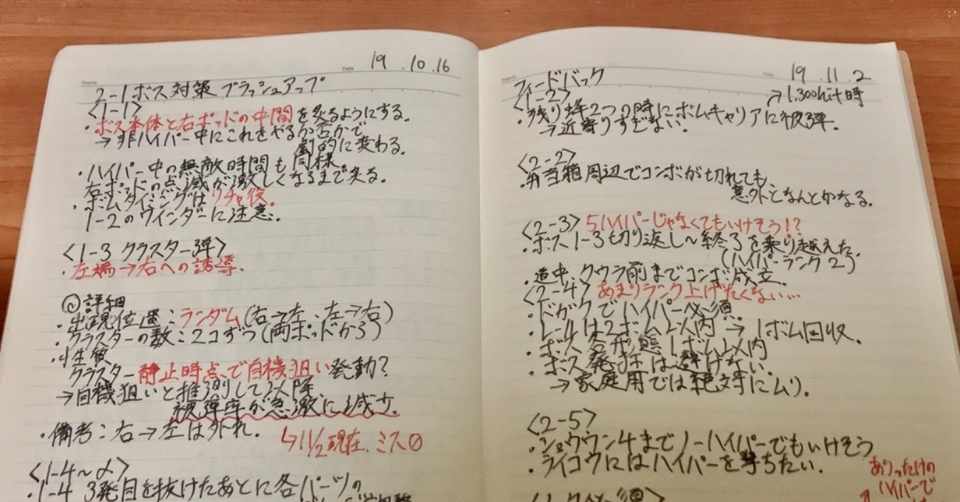 19.10.16
2-1ボス対策ブラッシュアップ
<1-1>
・ボス本体と右ポッドの中間を炙るようにする。
→非ハイパー中にこれをやるか否かで
劇的に変わる。
・ハイパー中の無敵時間も同様
右ポッドの点滅が激しくなるまで炙る。
・ボムタイミングはリチャ後。
1-2のウインダーに注意。
<1-3 クラスター3弾>
・左端→右への誘導。
詳細
・出現位置:ランダム(右→左、左→右)
・クラスターの数:2コずつ(両ポッドから)
・生後
クラスター静止時点で自機狙い発動?
→自機狙いと推測して以降
被弾率が急激に減少。
↳11/2現在、ミス0
・備考:右→左は外れ。
<1-4〜〆>
・1-4 3発目を抜けたあとに各パーツの
フィードバック
19.11.2
<1-2>
→1,300hit時
・残り蜂2つの時にボムキャリアに被弾。
→近寄りすぎない。
<2-2>
・弁当箱周辺でコンボが切れても
意外となんとかなる。
<2-3> 5ハイパーじゃなくてもいけそう!?
・ボス1-3切り返し〜終了を乗り越えた。
(ハイパーランク2)
・道中、クウラ前までコンボ成立。
<2-4> あまりランク上げたくない…
・ドガクでハイパー必須。
・L-4は2ボム以内→1ボム回収。
・ボス各形態1ボム以内
・ボス発狂は避けない。
→家庭用では絶対にムリ。
<2-5>
・ショウウン4までノーハイパーでもいけそう
・ライコウにはハイパーを撃ちたい。
ありったけの
ハイパーで